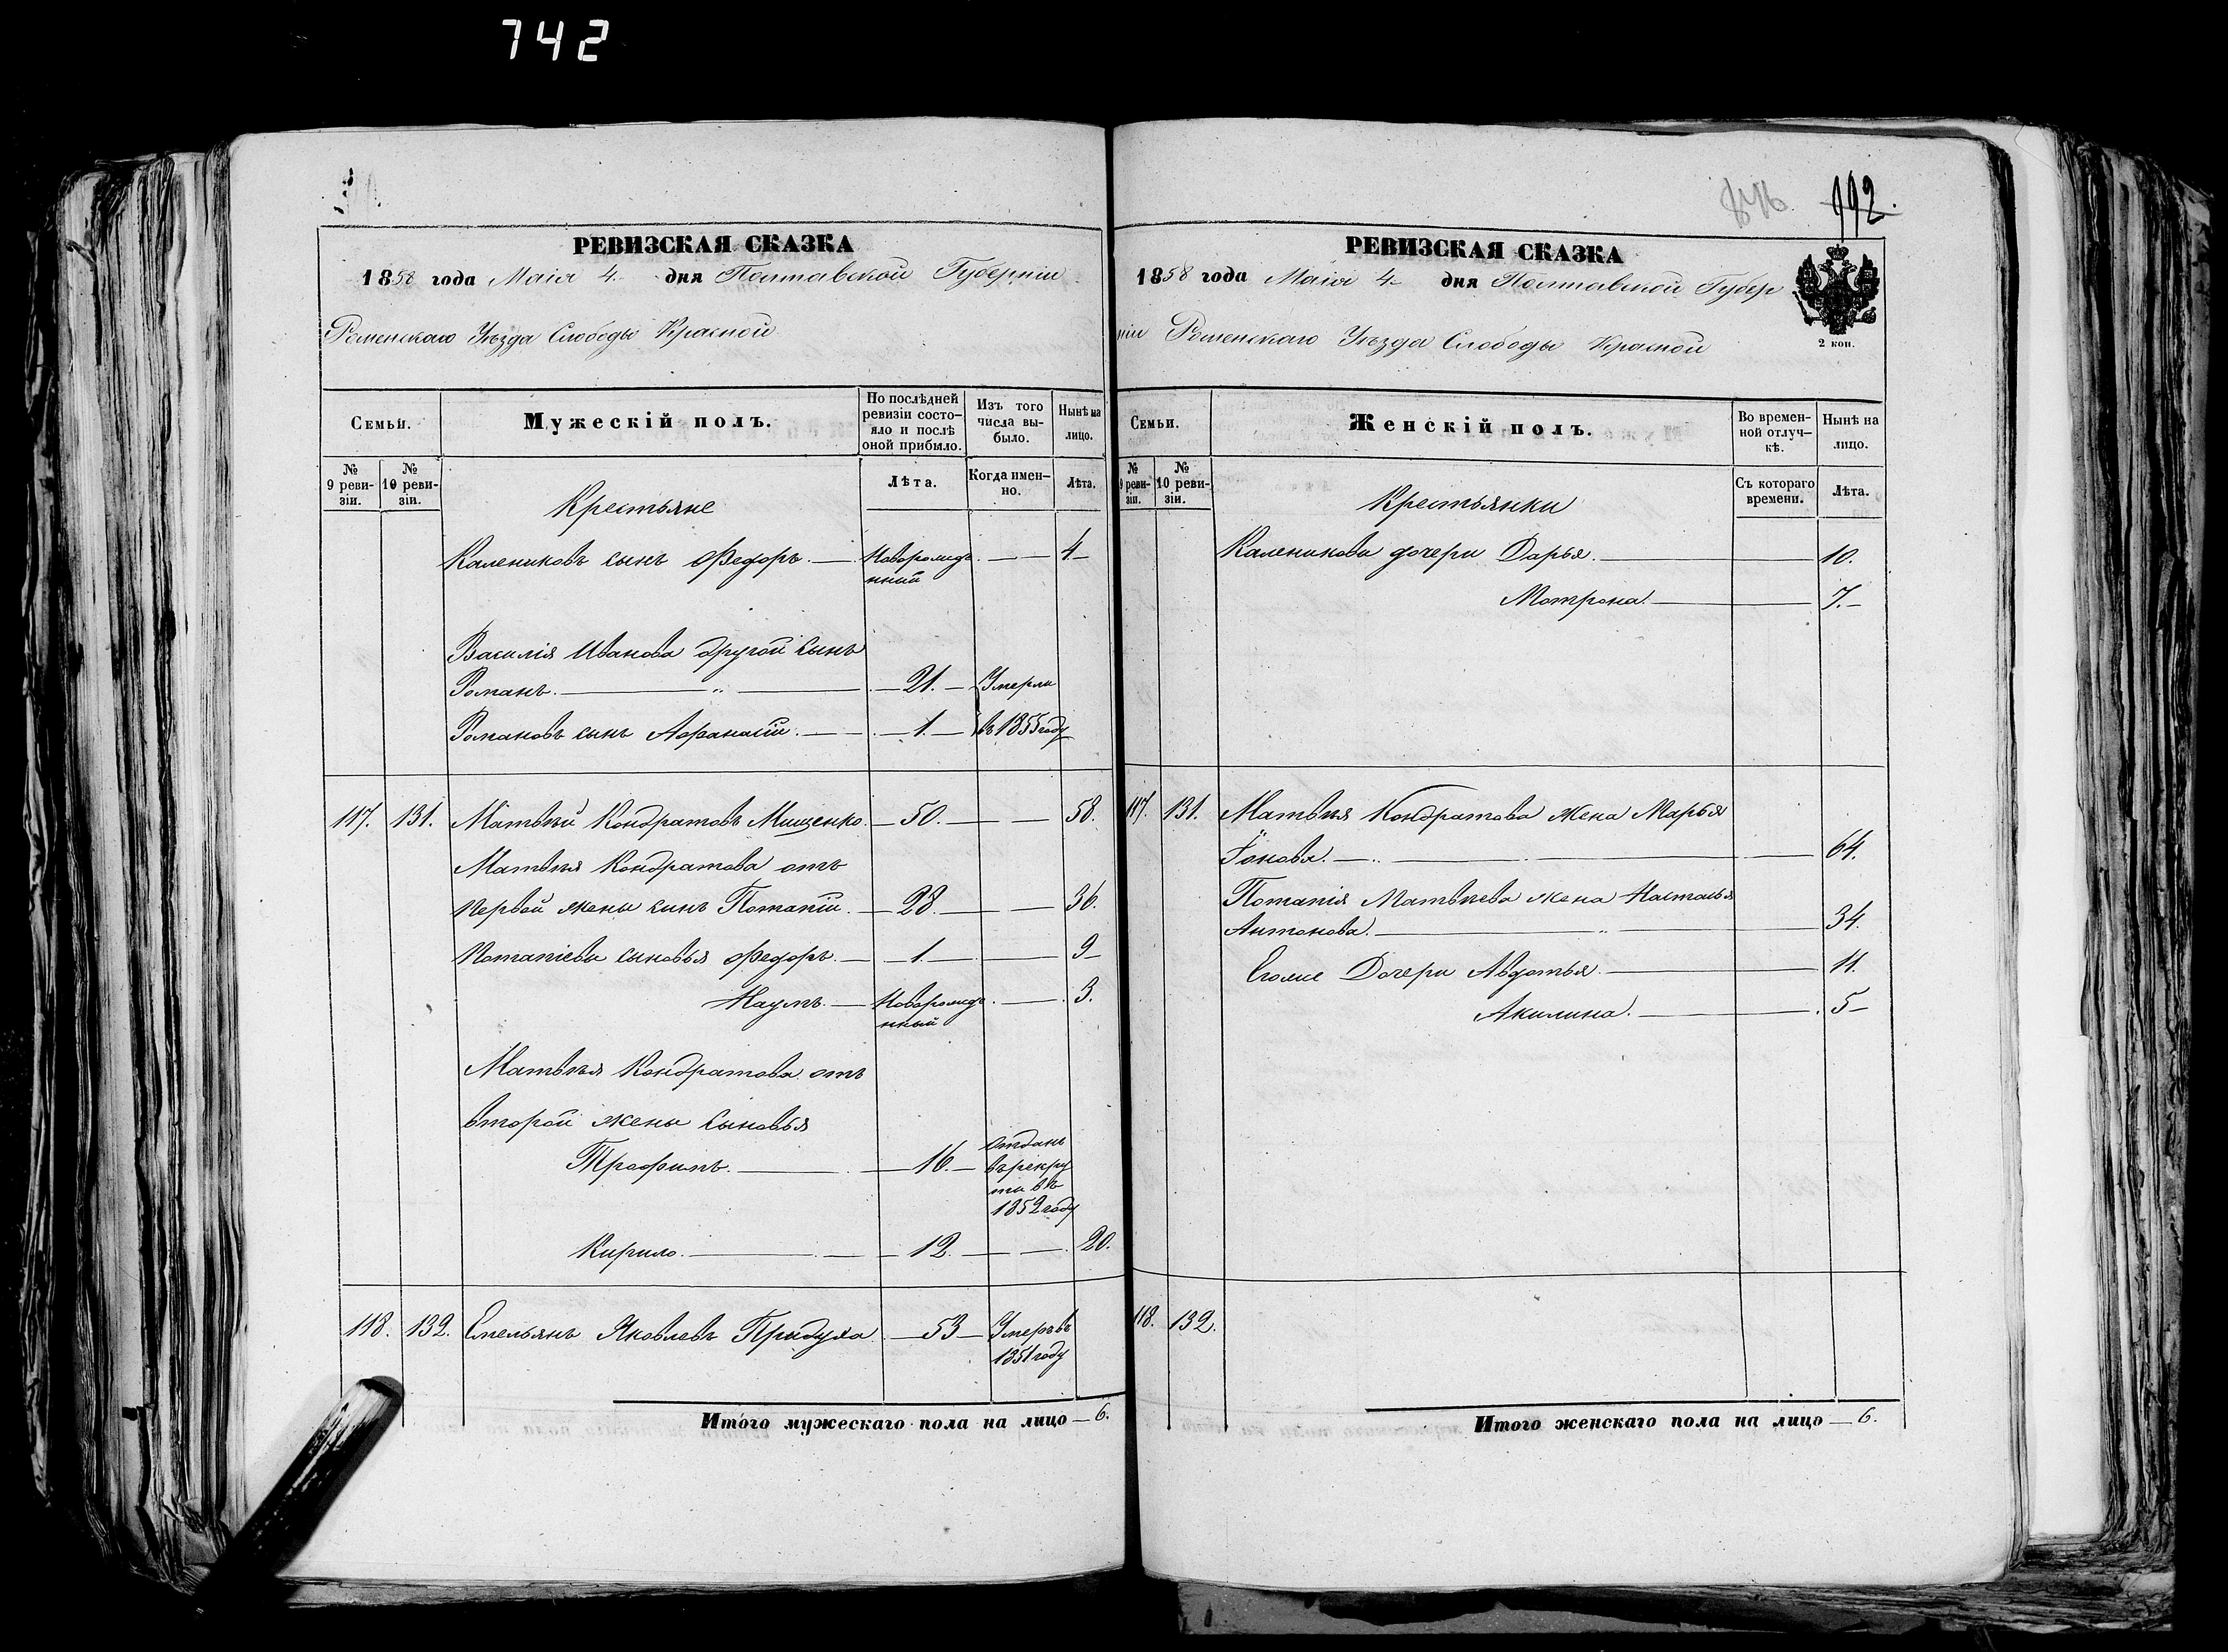 742
РЕВИЗСКАЯ СКАЗКА
1858 года Маія 4 дня Полтавской Губерніи
Роменскаго Уѣзда Слободы Красной
Семьи.
Мужескій полъ.
По послѣдней ревизіи состояло и послѣ оной прибыло.
Изъ того числа выбыло.
Нынѣ на лицо.
№ 9 ревизіи.
№ 10 ревизіи.
Лѣта.
Когда именно.
Лѣта.
Крестьяне
Калениковъ сынъ Федоръ. — Новорожденный — 4
Василія Иванова другой сынъ
Романъ. — 21. — Умерли
Романовъ сынъ Афанасій. — 1. — въ 1855 году
117. 131. Матвѣй Кондратовъ Мищенко. — 50. — 58.
Матвѣя Кондратова отъ
первой жены сынъ Потапій. — 28. — 36.
Потапіевы сыновья Федоръ. — 1. — 9
Наумъ. — Новорожденный — 3.
Матвѣя Кондратова отъ
второй жены сыновья
Трафимъ. — 16. — отданъ
въ рекру
ты въ
1852 году
Кирило. — 12. — 20.
118. 132. Емельянъ Яковлевъ — 53 — Умеръ въ
1851 году
Итого мужескаго пола на лицо — 6.
846. 192.
РЕВИЗСКАЯ СКАЗКА
1858 года Маія 4 дня Полтавской Губер
ніи Роменскаго Уѣзда Слободы Красной
2 коп.
Семьи.
Женскій полъ.
Во временной отлучкѣ.
Нынѣ на лицо.
№ 9 ревизіи.
№ 10 ревизіи.
Съ котораго времени.
Лѣта.
Крестьянки
Каленикова дочери Дарья. — 10.
Мотрона. — 7.
117. 131. Матвѣя Кондратова жена Марья
— 64.
Потапія Матвѣева жена Наталья
Антонова. — 34.
Егоже Дочери Авдотья. — 11.
Акилина. — 5
118. 132.
Итого женскаго пола на лицо — 6.